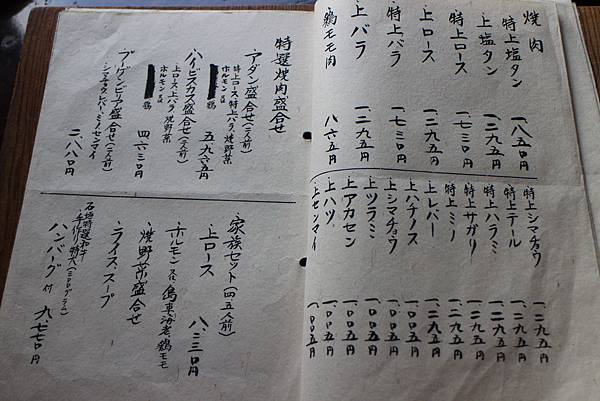 焼肉
特上塩タン 一、八五〇円
上塩タン 一、二九五円
特上ロース 一、七三〇円
上ロース 一、二九五円
特上バラ 一、七三〇円
上バラ 一、二九五円
鶏モモ肉 八六五円
特上シマチョウ 一、二九五円
特上テール 一、二九五円
特上ハラミ 一、二九五円
特上サガリ 一、二九五円
特上ミノ 一、二九五円
上レバー 一、二九五円
上ハチノス 一、〇〇五円
上シマチョウ 一、〇〇五円
上ツラミ 一、〇〇五円
上アカセン 一、〇〇五円
上ハツ 一、〇〇五円
上センマイ 一、〇〇五円
特選焼肉盛合せ
・アダン盛合せ(三人前)
特上ロース 特上バラ 焼野菜
ホルモン 鶏 五、九六五円
・ハイビスカス盛合せ(二人前)
上ロース 上バラ 焼野菜
ホルモン 鶏 四、六三〇円
・ブーゲンビリア盛合せ(二人前)
・シマチョウ、レバー、ミノ、センマイ
二、八八〇円
家族セット(四、五人前)
・上ロース 八、二三〇円
・ホルモン 島車海老 鶏モモ
・焼野菜盛合せ
・ライス、スープ
石垣特選和牛
・手作り特大(三〇〇グラム)
ハンバーグ付 九、七七〇円